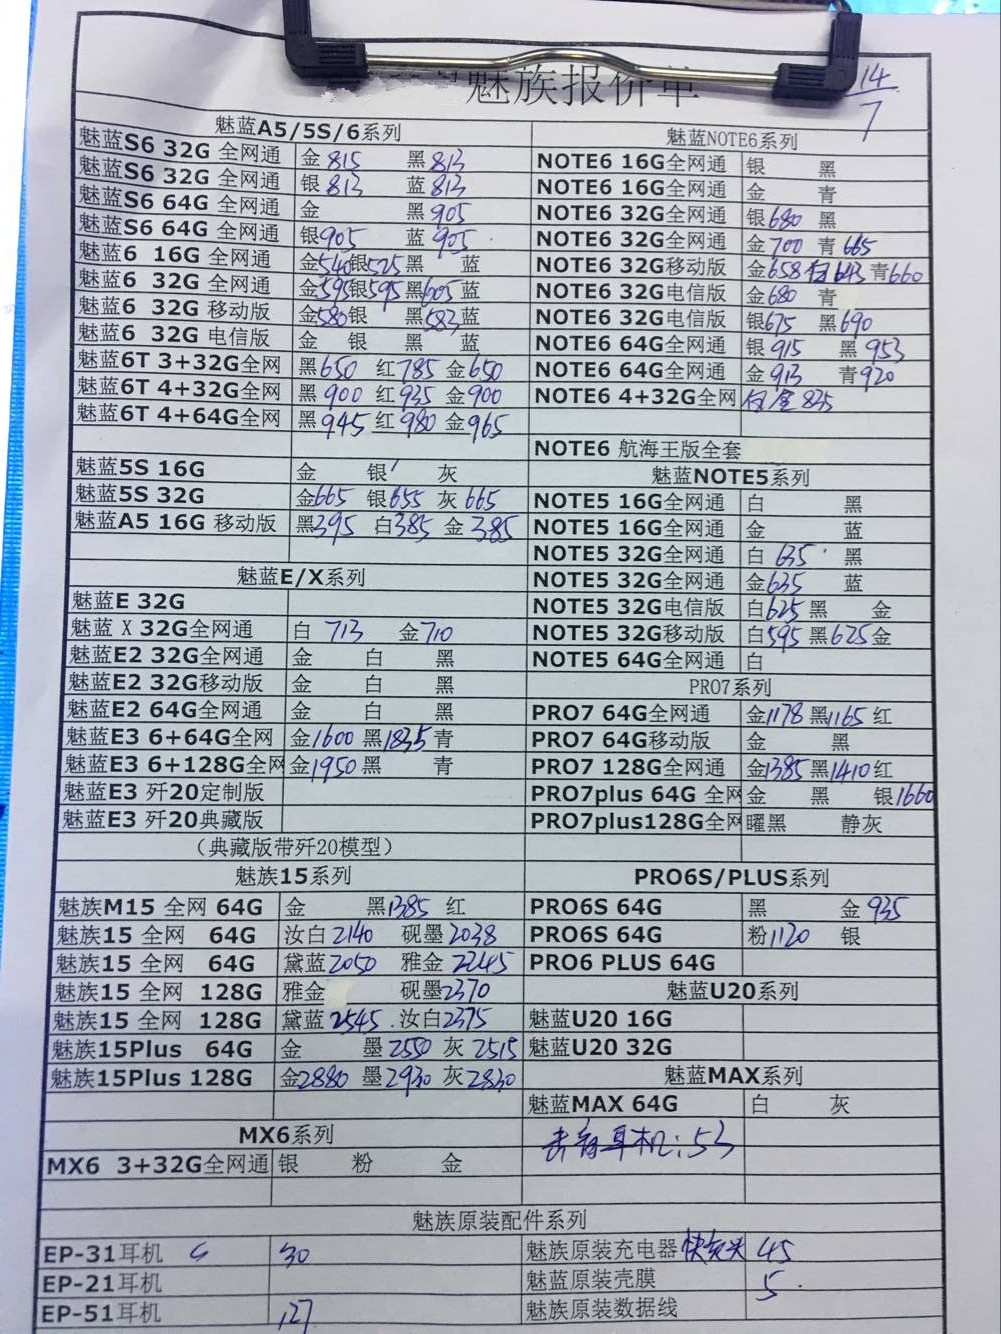 魅族报价单
14/7
魅蓝A5/5S/6系列
魅蓝S6 32G 全网通 金 815 黑 813
魅蓝S6 32G 全网通 银 813 蓝 813
魅蓝S6 64G 全网通 金 黑 905
魅蓝S6 64G 全网通 银905 蓝 905
魅蓝6 16G 全网通 金540银525黑 蓝
魅蓝6 32G 全网通 金595银595黑605蓝
魅蓝6 32G 移动版 金580银 黑583蓝
魅蓝6 32G 电信版 金 银 黑 蓝
魅蓝6T 3+32G全网 黑650 红785 金650
魅蓝6T 4+32G全网 黑900 红935 金900
魅蓝6T 4+64G全网 黑945 红980 金965
魅蓝5S 16G 金 银 灰
魅蓝5S 32G 金665 银655 灰665
魅蓝A5 16G 移动版 黑395 白385 金385
魅蓝E/X系列
魅蓝E 32G
魅蓝X 32G全网通 白 713 金710
魅蓝E2 32G全网通 金 白 黑
魅蓝E2 32G移动版 金 白 黑
魅蓝E2 64G全网通 金 白 黑
魅蓝E3 6+64G全网 金1600 黑1835青
魅蓝E3 6+128G全网 金1950 黑 青
魅蓝E3 歼20定制版
魅蓝E3 歼20典藏版
（典藏版带歼20模型）
魅族15系列
魅族M15 全网 64G 金 黑1385 红
魅族15 全网 64G 汝白2140 砚墨2038
魅族15 全网 64G 黛蓝2050 雅金 2245
魅族15 全网 128G 雅金 砚墨2370
魅族15 全网 128G 黛蓝2545 汝白2375
魅族15Plus 64G 金 墨2550 灰2515
魅族15Plus 128G 金2880 墨2930 灰2830
MX6系列
MX6 3+32G全网通 银 粉 金
魅蓝NOTE6系列
NOTE6 16G全网通 银 黑
NOTE6 16G全网通 金 青
NOTE6 32G全网通 银680 黑
NOTE6 32G全网通 金700 青665
NOTE6 32G移动版 金658 643 青660
NOTE6 32G电信版 金680 青
NOTE6 32G电信版 银675 黑690
NOTE6 64G全网通 银915 黑953
NOTE6 64G全网通 金913 青920
NOTE6 4+32G全网 835
NOTE6 航海王版全套
魅蓝NOTE5系列
NOTE5 16G全网通 白 黑
NOTE5 16G全网通 金 蓝
NOTE5 32G全网通 白 635 黑
NOTE5 32G全网通 金635 蓝
NOTE5 32G电信版 白625 黑 金
NOTE5 32G移动版 白595 黑625金
NOTE5 64G全网通 白
PRO7系列
PRO7 64G全网通 金1178 黑1165 红
PRO7 64G移动版 金 黑
PRO7 128G全网通 金1385黑1410红
PRO7plus 64G 全网 金 黑 银1660
PRO7plus128G全网 曜黑 静灰
PRO6S/PLUS系列
PRO6S 64G 黑 金 935
PRO6S 64G 粉1120 银
PRO6 PLUS 64G
魅蓝U20系列
魅蓝U20 16G
魅蓝U20 32G
魅蓝MAX系列
魅蓝MAX 64G 白 灰
耳机:53
魅族原装配件系列
EP-31耳机 30
EP-21耳机
EP-51耳机 127
魅族原装充电器 45
魅蓝原装壳膜 5
魅族原装数据线